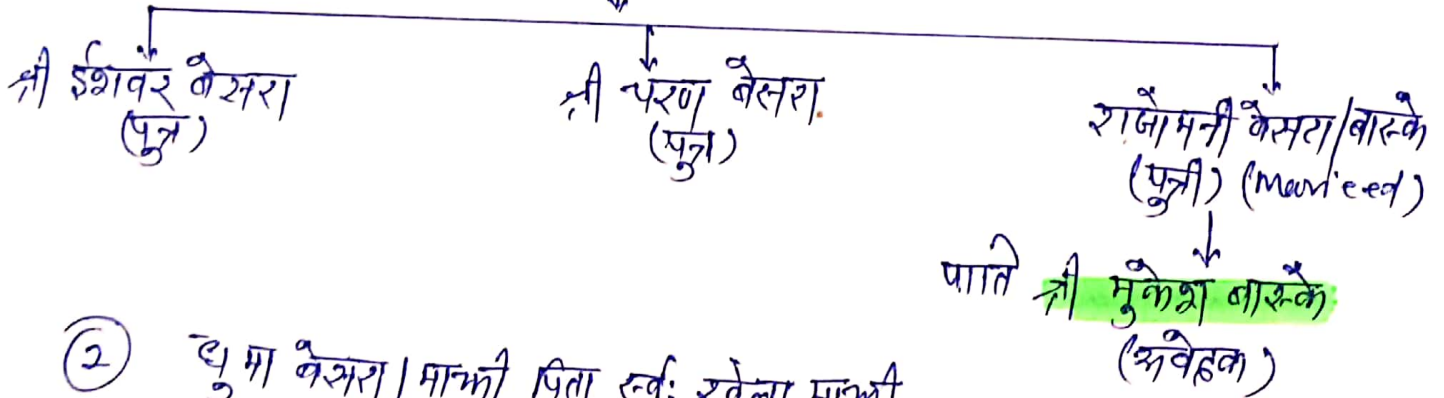 श्री ईशवर बेसरा श्री चरण बेसरा. राजोमनी बेसरा/बास्के
(पुत्र) (पुत्र) (पुत्री) (Marrieed)
पति श्री मुकेश बास्के
(आवेदक)
② धुमा बेसरा/माझी पिता स्व: खेला माझी